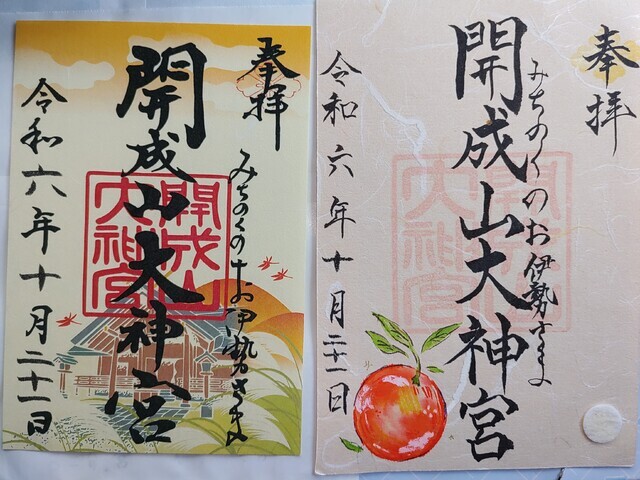 奉拝
みちのくのお伊勢さま
開成山大神宮
開成山
大神宮
令和六年十月二十一日
奉拝
みちのくのお伊勢さま
開成山大神宮
開成山
大神宮
令和六年十月二十一日